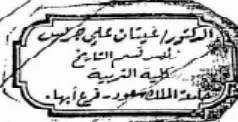 الدكتور/غيثان علي جريس
رئيس قسم التاريخ
كلية التربية
جامعة الملك سعود - فرع أبها